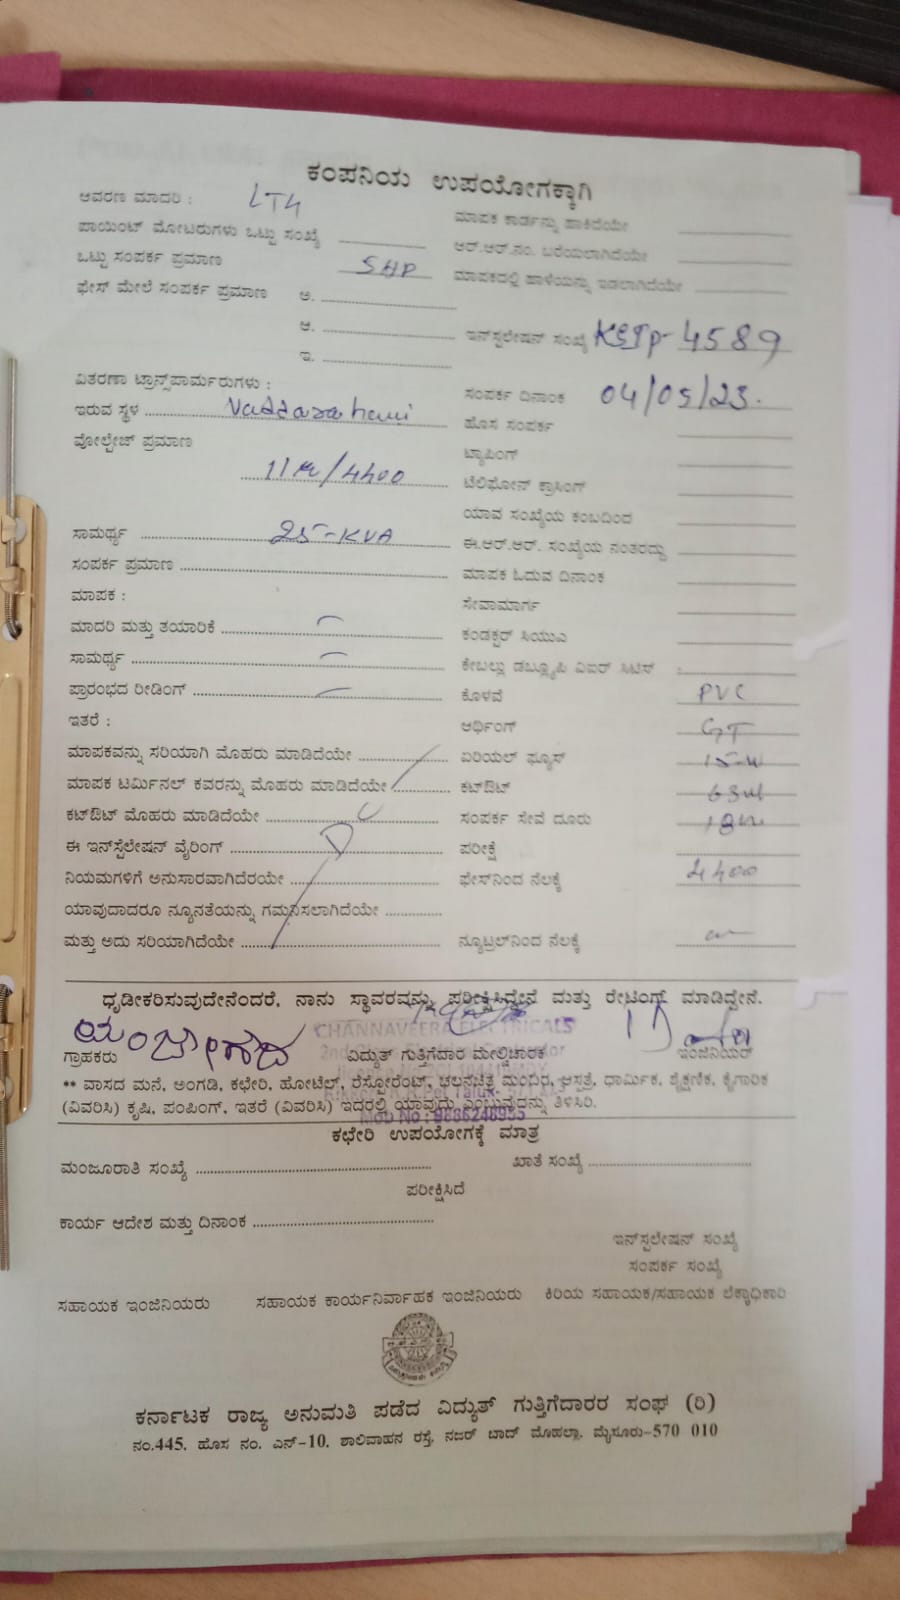 ಕಂಪನಿಯ ಉಪಯೋಗಕ್ಕಾಗಿ
ಆವರಣ ಮಾದರಿ : LT4
ಮಾಪಕ ಕಾರ್ಡನ್ನು ಹಾಕಿದೆಯೇ
ಪಾಯಿಂಟ್ ಮೋಟರುಗಳು ಒಟ್ಟು ಸಂಖ್ಯೆ
ಆರ್.ಆರ್.ನಂ. ಬರೆಯಲಾಗಿದೆಯೇ
ಒಟ್ಟು ಸಂಪರ್ಕ ಪ್ರಮಾಣ 5HP
ಮಾಪಕದಲ್ಲಿ ಹಾಳೆಯನ್ನು ಇಡಲಾಗಿದೆಯೇ
ಫೇಸ್ ಮೇಲೆ ಸಂಪರ್ಕ ಪ್ರಮಾಣ ಅ.
ಆ.
ಇನ್‌ಸ್ಟಲೇಷನ್ ಸಂಖ್ಯೆ 4589
ಇ.
ವಿತರಣಾ ಟ್ರಾನ್ಸ್‌ಪಾರ್ಮರುಗಳು :
ಸಂಪರ್ಕ ದಿನಾಂಕ 04/05/23.
ಇರುವ ಸ್ಥಳ
ಹೊಸ ಸಂಪರ್ಕ
ವೋಲ್ಟೇಜ್ ಪ್ರಮಾಣ
ಟ್ಯಾಪಿಂಗ್
ಟೆಲಿಫೋನ್ ಕ್ರಾಸಿಂಗ್
ಯಾವ ಸಂಖ್ಯೆಯ ಕಂಬದಿಂದ
ಸಾಮರ್ಥ್ಯ 25-KVA
ಈ.ಆರ್.ಆರ್. ಸಂಖ್ಯೆಯ ನಂತರದ್ದು
ಸಂಪರ್ಕ ಪ್ರಮಾಣ
ಮಾಪಕ ಓದುವ ದಿನಾಂಕ
ಮಾಪಕ :
ಸೇವಾಮಾರ್ಗ
ಮಾದರಿ ಮತ್ತು ತಯಾರಿಕೆ
ಕಂಡಕ್ಟರ್ ಸಿಯುಎ
ಸಾಮರ್ಥ್ಯ
ಕೇಬಲ್ಲು ಡಬ್ಲ್ಯೂಪಿ ಎಐರ್ ಸಿಟಿಸ್ :
ಪ್ರಾರಂಭದ ರೀಡಿಂಗ್
ಕೊಳವೆ PVC
ಇತರೆ :
ಅರ್ಥಿಂಗ್
ಮಾಪಕವನ್ನು ಸರಿಯಾಗಿ ಮೊಹರು ಮಾಡಿದೆಯೇ
ಏರಿಯಲ್ ಫ್ಯೂಸ್
ಮಾಪಕ ಟರ್ಮಿನಲ್ ಕವರನ್ನು ಮೊಹರು ಮಾಡಿದೆಯೇ
ಕಟ್‌ಔಟ್
ಕಟ್‌ಔಟ್ ಮೊಹರು ಮಾಡಿದೆಯೇ
ಸಂಪರ್ಕ ಸೇವೆ ದೂರು
ಈ ಇನ್‌ಸ್ಪೆಲೇಷನ್ ವೈರಿಂಗ್
ಪರೀಕ್ಷೆ
ನಿಯಮಗಳಿಗೆ ಅನುಸಾರವಾಗಿದೆರಯೇ
ಫೇಸ್‌ನಿಂದ ನೆಲಕ್ಕೆ
ಯಾವುದಾದರೂ ನ್ಯೂನತೆಯನ್ನು ಗಮನಿಸಲಾಗಿದೆಯೇ
ಮತ್ತು ಅದು ಸರಿಯಾಗಿದೆಯೇ
ನ್ಯೂಟ್ರಲ್‌ನಿಂದ ನೆಲಕ್ಕೆ
ಧೃಡೀಕರಿಸುವುದೇನೆಂದರೆ, ನಾನು ಸ್ಥಾವರವನ್ನು ಪರೀಕ್ಷಿಸಿದ್ದೇನೆ ಮತ್ತು ರೇಟಿಂಗ್ ಮಾಡಿದ್ದೇನೆ.
CHANNAVEERA ELECTRICALS
ಗ್ರಾಹಕರು ವಿದ್ಯುತ್ ಗುತ್ತಿಗೆದಾರ ಮೇಲ್ವಿಚಾರಕ ಇಂಜಿನಿಯರ್
** ವಾಸದ ಮನೆ, ಅಂಗಡಿ, ಕಛೇರಿ, ಹೋಟೆಲ್, ರೆಸ್ಟೋರೆಂಟ್, ಚಲನಚಿತ್ರ ಮಂದಿರ, ಆಸ್ಪತ್ರೆ, ಧಾರ್ಮಿಕ, ಶೈಕ್ಷಣಿಕ, ಕೈಗಾರಿಕೆ
(ವಿವರಿಸಿ) ಕೃಷಿ, ಪಂಪಿಂಗ್, ಇತರೆ (ವಿವರಿಸಿ) ಇದರಲ್ಲಿ ಯಾವುದು ಎಂಬುವುದನ್ನು ತಿಳಿಸಿರಿ.
ಕಛೇರಿ ಉಪಯೋಗಕ್ಕೆ ಮಾತ್ರ
ಮಂಜೂರಾತಿ ಸಂಖ್ಯೆ ಖಾತೆ ಸಂಖ್ಯೆ
ಪರೀಕ್ಷಿಸಿದೆ
ಕಾರ್ಯ ಆದೇಶ ಮತ್ತು ದಿನಾಂಕ
ಇನ್‌ಸ್ಟಲೇಷನ್ ಸಂಖ್ಯೆ
ಸಂಪರ್ಕ ಸಂಖ್ಯೆ
ಸಹಾಯಕ ಇಂಜಿನಿಯರು ಸಹಾಯಕ ಕಾರ್ಯನಿರ್ವಾಹಕ ಇಂಜಿನಿಯರು ಕಿರಿಯ ಸಹಾಯಕ/ಸಹಾಯಕ ಲೆಕ್ಕಾಧಿಕಾರಿ
ಕರ್ನಾಟಕ ರಾಜ್ಯ ಅನುಮತಿ ಪಡೆದ ವಿದ್ಯುತ್ ಗುತ್ತಿಗೆದಾರರ ಸಂಘ (ರಿ)
ನಂ.445, ಹೊಸ ನಂ. ಎನ್-10, ಶಾಲಿವಾಹನ ರಸ್ತೆ, ನಜರ್ ಬಾದ್ ಮೊಹಲ್ಲಾ, ಮೈಸೂರು-570 010